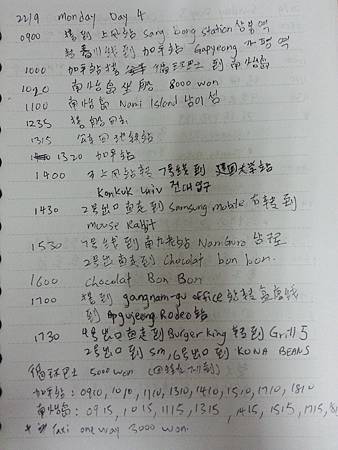 22/9 Monday Day 4
0900 搭到上鳳站 Sang bong station 상봉역
轉春川线到加平站 Gapyeong 가평역
1000 加平站搭 循环巴士 到南怡島
1020 南怡島坐船 8000 won
1100 南怡島 Nami Island 남이섬
1235 搭船回
1315
1320 加平站
1400 于上鳳站轉 7号线到建國大学站
Konkuk Univ 건대입구
1430 2号出口直走到 Samsung mobile 右轉到
Mouse Rabbit
1530 7号线到南九老站 Namguro
2号出口直走到 Chocolat bon bon.
1600 chocolat Bon Bon
1700 搭到 gangnam-gu office 站轉盆唐线
到 Apgujeong Rodeo站
1730 4号出口直走到 Burger king 轉到 Grill5
2号出口到 SM, 6号出口到 KONA BEANS
循环巴士 5000 won
加平站: 0910, 1010, 1110, 1310, 1410, 1510, 1710, 1810
南怡島: 0915, 1015, 1115, 1315, 1415, 1515, 1715,
Taxi one way 3000 won.